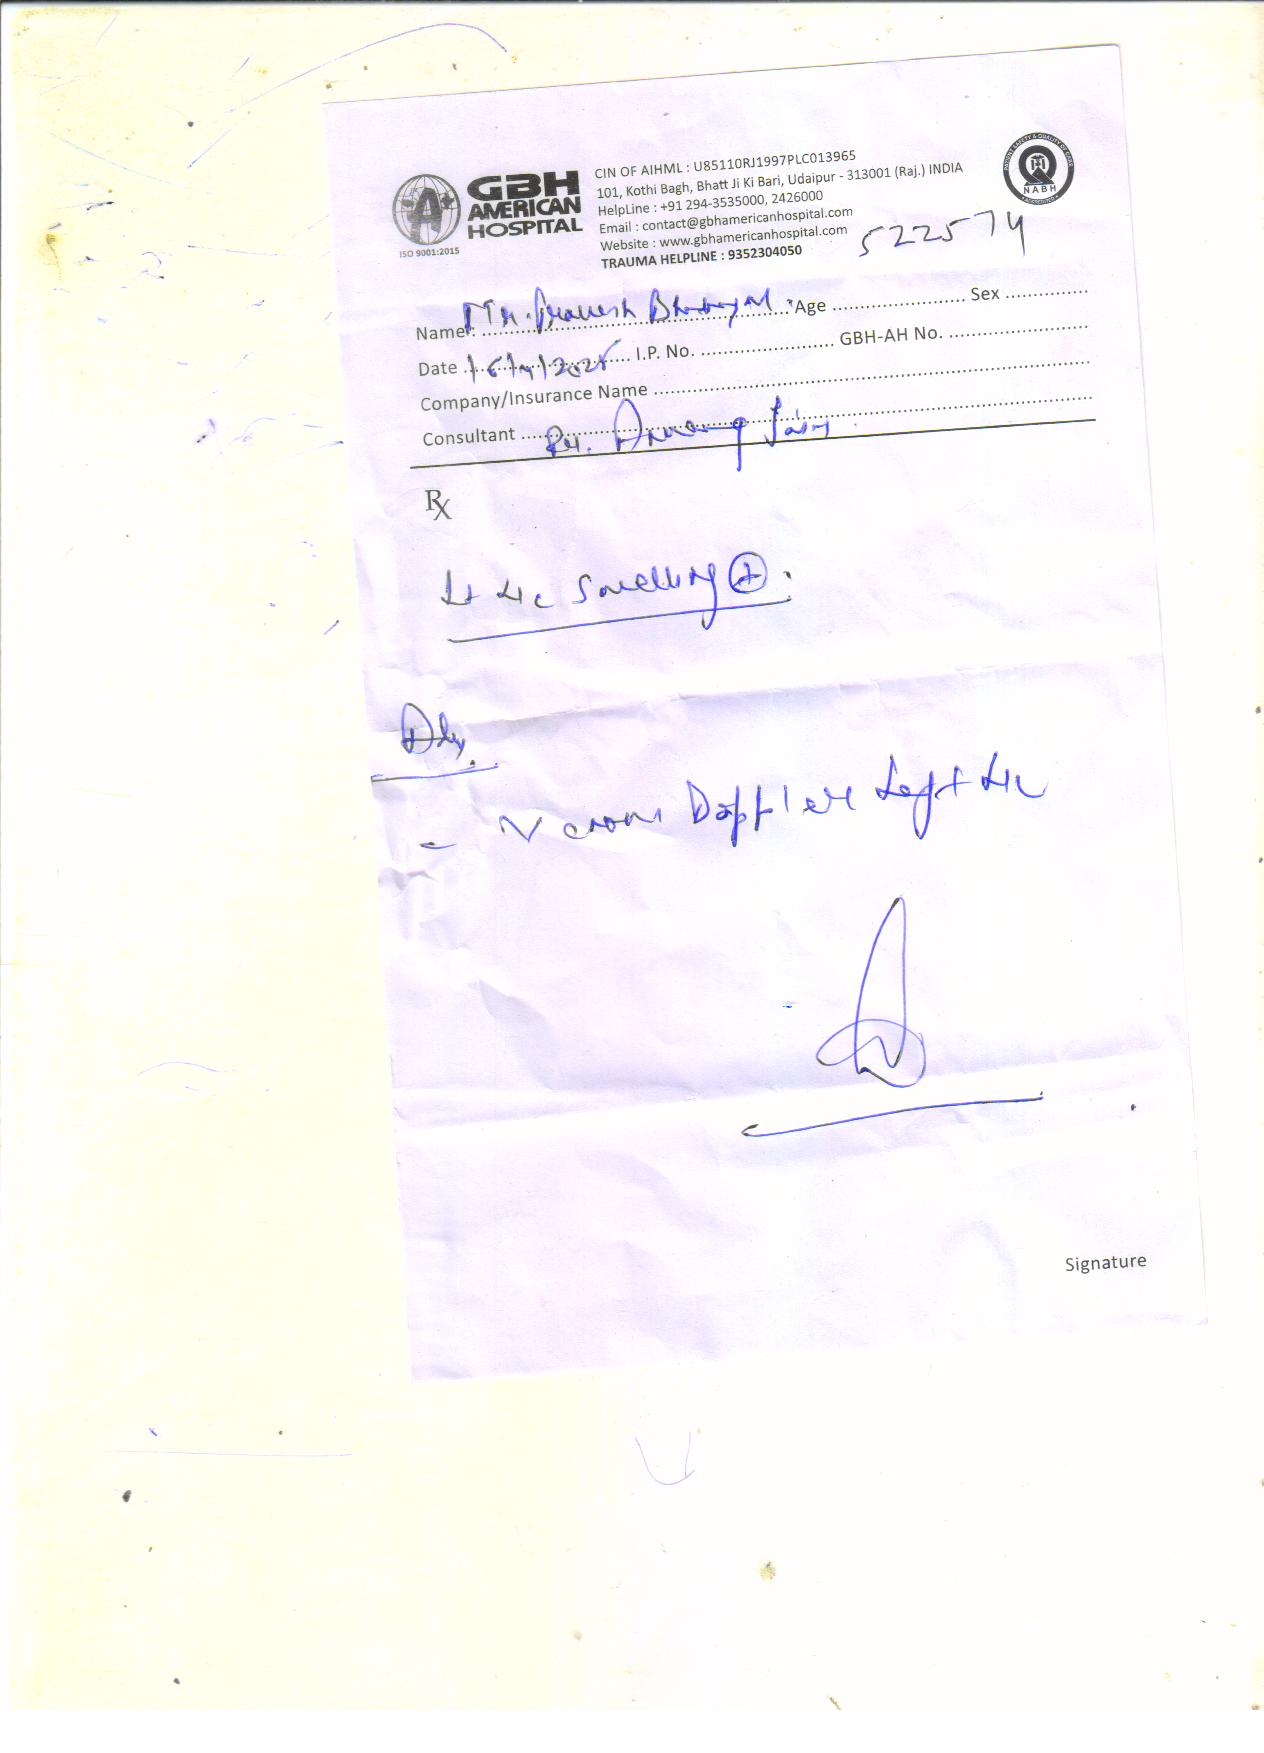 GBH
AMERICAN
HOSPITAL
ISO 9001:2015
CIN OF AIHML : U85110RJ1997PLC013965
101, Kothi Bagh, Bhatt Ji Ki Bari, Udaipur - 313001 (Raj.) INDIA
HelpLine : +91 294-3535000, 2426000
Email : contact@gbhamericanhospital.com
Website : www.gbhamericanhospital.com
TRAUMA HELPLINE : 9352304050
NABH
522574
Name: Mr. Age Sex
Date I.P. No. GBH-AH No.
Company/Insurance Name
Consultant Dr. Jain
Rx
Lt LL Swelling (+).
Adv.
- Venous Doppler Left LL
Signature